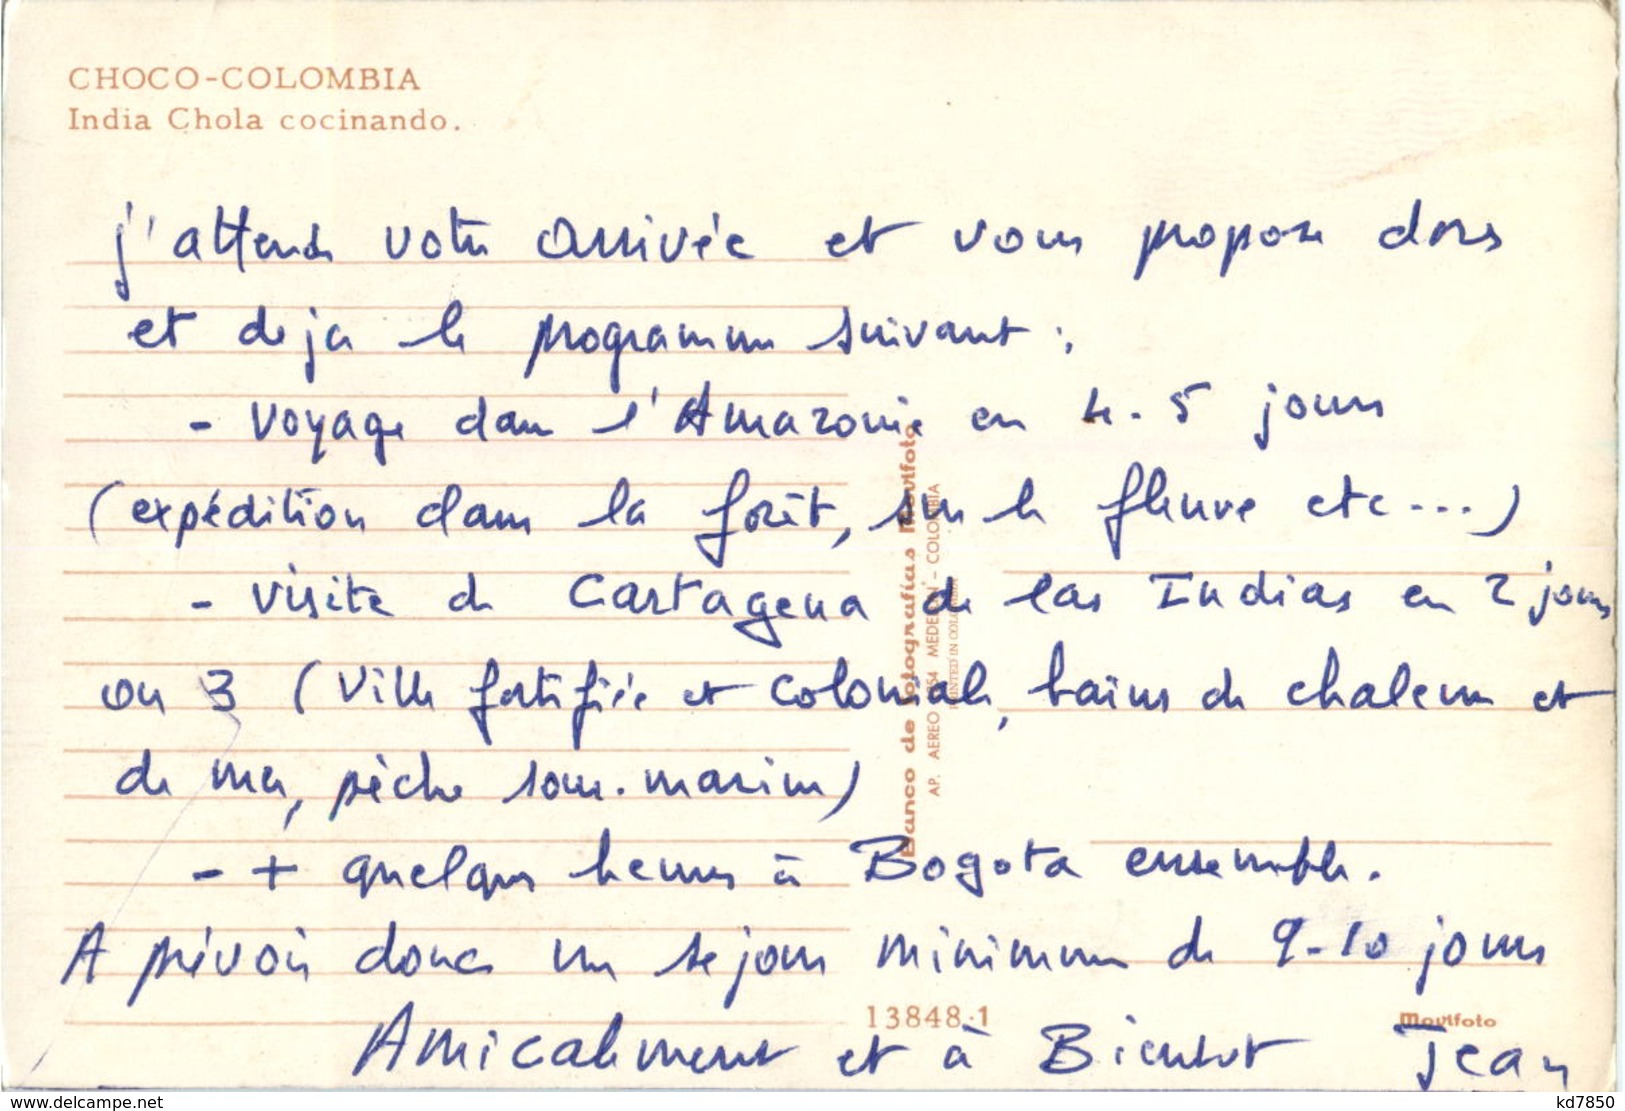 CHOCO-COLOMBIA
India Chola cocinando.
j'attends votre arrivée et vous propose dors
et deja le programme suivant :
- Voyage dans l'Amazonie en 4-5 jours
(expédition dans la forêt, sur le fleuve etc...)
- Visite de Cartagena de las Indias en 2 jours
ou 3 (Ville fortifiée et coloniale, bains de chaleur et
de mer, pêche sous-marine)
- + quelques heures à Bogota ensemble.
A prévoir donc un sejour minimum de 9-10 jours
Amicalement et à Bientot Jean
Banco de Fotografias Movifoto
AP. AEREO MEDELLIN - COLOMBIA
PRINTED IN COLOMBIA
13848-1
Movifoto
www.delcampe.net
kd7850